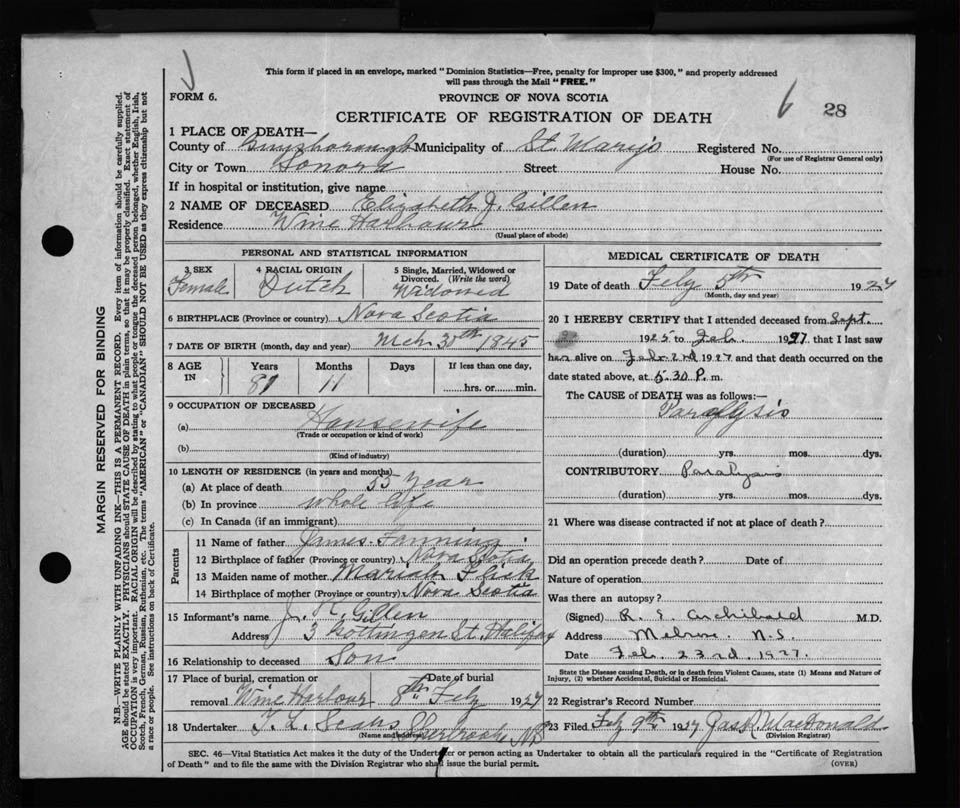 This form if placed in an envelope, marked "Dominion Statistics—Free, penalty for improper use $300," and properly addressed
will pass through the Mail "FREE."
FORM 6.
PROVINCE OF NOVA SCOTIA
6 28
CERTIFICATE OF REGISTRATION OF DEATH
1 PLACE OF DEATH—
County of Guysborough Municipality of St. Marys Registered No.
(For use of Registrar General only)
City or Town Sonora Street House No.
If in hospital or institution, give name
2 NAME OF DECEASED Elizabeth J. Gillen
Residence Wine Harbour
(Usual place of abode)
PERSONAL AND STATISTICAL INFORMATION
3 SEX 4 RACIAL ORIGIN 5 Single, Married, Widowed or
Divorced. (Write the word)
Female Dutch Widowed
6 BIRTHPLACE (Province or country) Nova Scotia
7 DATE OF BIRTH (month, day and year) Mch 30th 1845
8 AGE IN Years Months Days If less than one day,
81 11 hrs. or min.
9 OCCUPATION OF DECEASED
(a) Housewife
(Trade or occupation or kind of work)
(b)
(Kind of industry)
10 LENGTH OF RESIDENCE (in years and months)
(a) At place of death 55 Year
(b) In province whole life
(c) In Canada (if an immigrant)
Parents
11 Name of father James Fanning
12 Birthplace of father (Province or country) Nova Scotia
13 Maiden name of mother Mariah Flick
14 Birthplace of mother (Province or country) Nova Scotia
15 Informant's name J. R. Gillen
Address 3 Gottingen St. Halifax
16 Relationship to deceased Son
17 Place of burial, cremation or Date of burial
removal Wine Harbour 8th Feby 1927
18 Undertaker Sherbrooke NS
(Name and address)
MEDICAL CERTIFICATE OF DEATH
19 Date of death Feby 5th 1927
(Month, day and year)
20 I HEREBY CERTIFY that I attended deceased from Sept.
1925 to Feb. 1927 that I last saw
her alive on Feb. 2nd 1927 and that death occurred on the
date stated above, at 5.30 P. m.
The CAUSE of DEATH was as follows:—
Paralysis
(duration) yrs. mos. dys.
CONTRIBUTORY Paralysis
(duration) yrs. mos. dys.
21 Where was disease contracted if not at place of death?
Did an operation precede death? Date of
Nature of operation
Was there an autopsy?
(Signed) R. S. Archibald M.D.
Address Melrose N.S.
Date Feb. 23rd 1927.
State the Disease causing Death, or in death from Violent Causes, state (1) Means and Nature of
Injury, (2) whether Accidental, Suicidal or Homicidal.
22 Registrar's Record Number
23 Filed Feby 9th 1927 Jas R MacDonald
(Division Registrar)
SEC. 46—Vital Statistics Act makes it the duty of the Undertaker or person acting as Undertaker to obtain all the particulars required in the "Certificate of Registration
of Death" and to file the same with the Division Registrar who shall issue the burial permit.
(OVER)
MARGIN RESERVED FOR BINDING
N.B.—WRITE PLAINLY WITH UNFADING INK—THIS IS A PERMANENT RECORD. Every item of information should be carefully supplied.
AGE should be stated EXACTLY. PHYSICIANS should STATE CAUSE OF DEATH in plain terms, so that it may be properly classified. Exact statement of
OCCUPATION is very important. RACIAL ORIGIN will be described by stating to what people or tongue the deceased person belonged, whether English, Irish,
Scotch, French, German, Russian, Ruthenian, etc. The terms "AMERICAN" or "CANADIAN" SHOULD NOT BE USED as they express citizenship but not
a race or people. See instructions on back of Certificate.